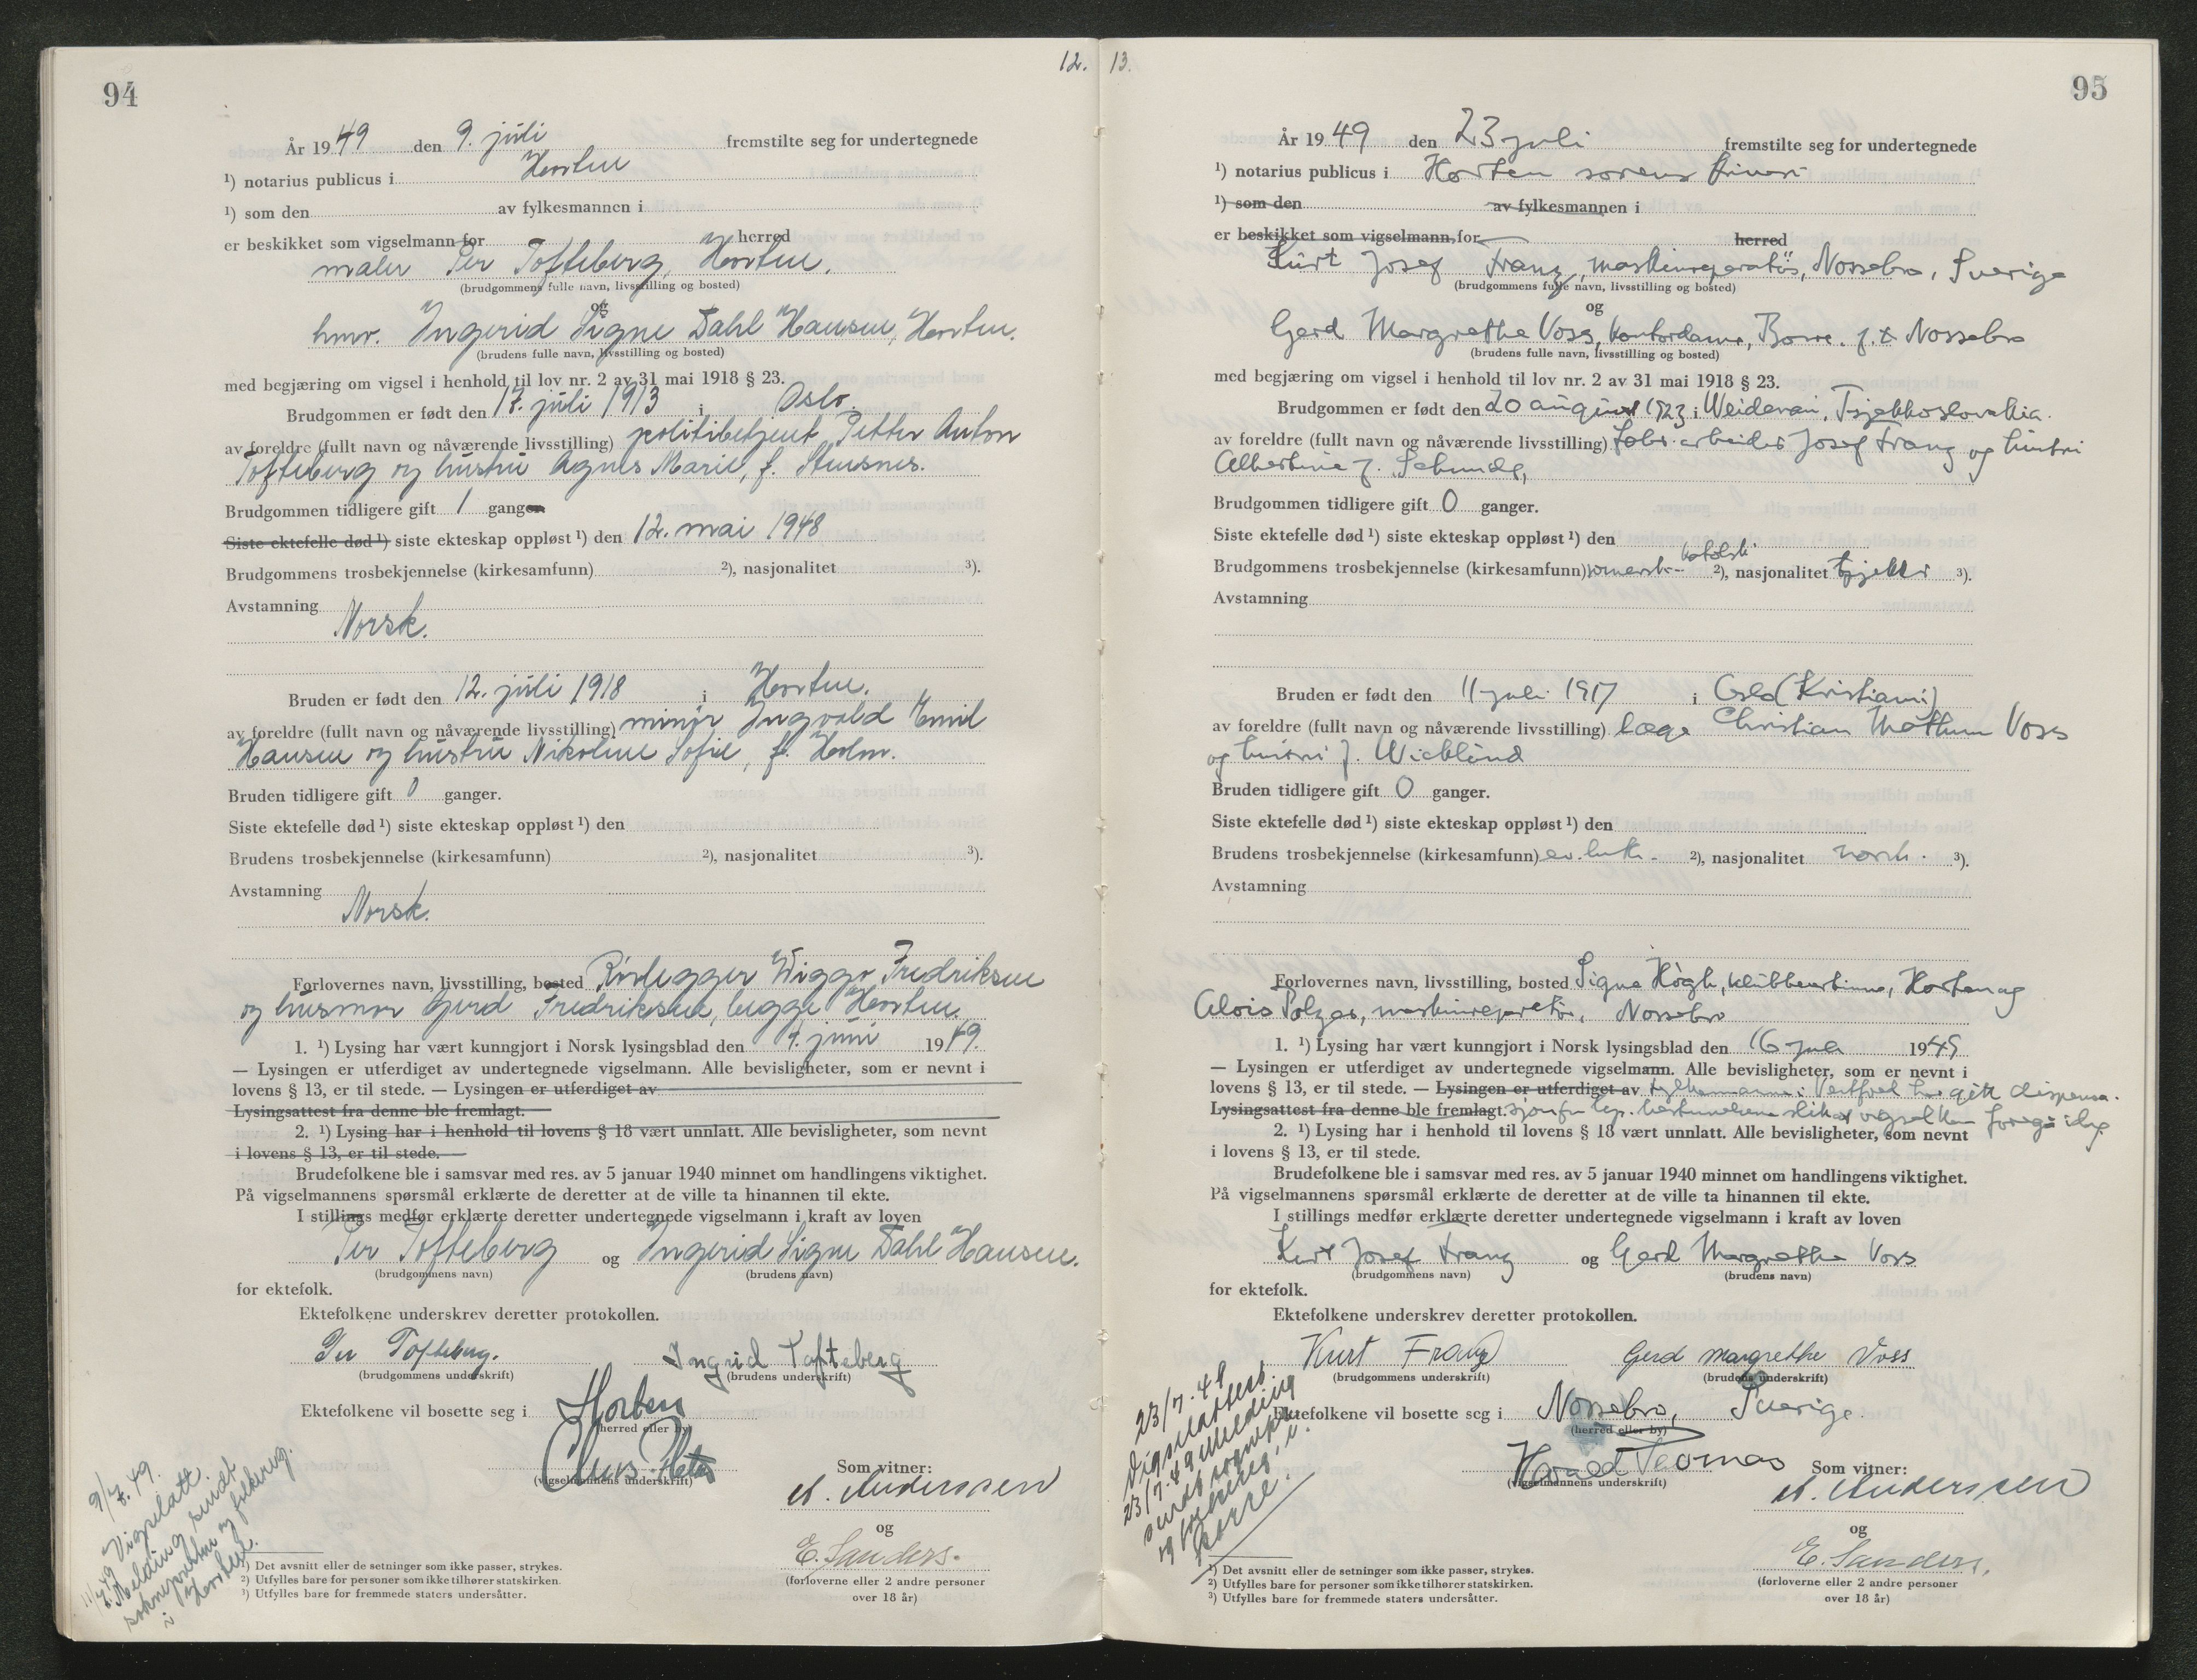 94
12.
År 1949 den 9. juli fremstilte seg for undertegnede
¹) notarius publicus i Horten
¹) som den av fylkesmannen i
er beskikket som vigselmann for herred
maler Per Tofteberg, Horten.
(brudgommens fulle navn, livsstilling og bosted)
og
hmv. Ingerid Signe Dahl Hansen, Horten.
(brudens fulle navn, livsstilling og bosted)
med begjæring om vigsel i henhold til lov nr. 2 av 31 mai 1918 § 23.
Brudgommen er født den 17. juli 1913 i Oslo.
av foreldre (fullt navn og nåværende livsstilling) politibetjent Petter Anton
Tofteberg og hustru Agnes Marie, f. Stensnes.
Brudgommen tidligere gift 1 gangen
Siste ektefelle død ¹) siste ekteskap oppløst ¹) den 12. mai 1948
Brudgommens trosbekjennelse (kirkesamfunn) ²), nasjonalitet ³).
Avstamning
Norsk.
Bruden er født den 12. juli 1918 i Horten.
av foreldre (fullt navn og nåværende livsstilling) minør Ingvald Emil
Hansen og hustru Nikoline Sofie, f. Holm.
Bruden tidligere gift 0 ganger.
Siste ektefelle død ¹) siste ekteskap oppløst ¹) den
Brudens trosbekjennelse (kirkesamfunn) ²), nasjonalitet ³).
Avstamning
Norsk.
Forlovernes navn, livsstilling, bosted Rørlegger Wiggo Fredriksen
og husmor Gerd Fredriksen, begge Horten.
1. ¹) Lysing har vært kunngjort i Norsk lysingsblad den 9. juni 1949.
— Lysingen er utferdiget av undertegnede vigselmann. Alle bevisligheter, som er nevnt i
lovens § 13, er til stede. — Lysingen er utferdiget av
Lysingsattest fra denne ble fremlagt.
2. ¹) Lysing har i henhold til lovens § 18 vært unnlatt. Alle bevisligheter, som nevnt
i lovens § 13, er til stede.
Brudefolkene ble i samsvar med res. av 5 januar 1940 minnet om handlingens viktighet.
På vigselmannens spørsmål erklærte de deretter at de ville ta hinannen til ekte.
I stillings medfør erklærte deretter undertegnede vigselmann i kraft av loven
Per Tofteberg og Ingerid Signe Dahl Hansen.
(brudgommens navn) (brudens navn)
for ektefolk.
Ektefolkene underskrev deretter protokollen.
Per Tofteberg. Ingrid Tofteberg
(brudgommens underskrift) (brudens underskrift)
Ektefolkene vil bosette seg i Horten
(herred eller by)
(vigselmannens underskrift)
Som vitner:
A. Anderssen
og
E. Sanders.
(forloverne eller 2 andre personer
over 18 år)
9/7.49.
Vigselatt.
11/7.49 Melding sendt
sokneprestn og folkereg.
i Horten.
¹) Det avsnitt eller de setninger som ikke passer, strykes.
²) Utfylles bare for personer som ikke tilhører statskirken.
³) Utfylles bare for fremmede staters undersåtter.
13.
95
År 1949 den 23 juli fremstilte seg for undertegnede
¹) notarius publicus i Horten sorenskriveri
¹) som den av fylkesmannen i
er beskikket som vigselmann for herred
Kurt Josef Franz, maskinreparatør, Nossebro, Sverige
(brudgommens fulle navn, livsstilling og bosted)
og
Gerd Margrethe Voss, kontordame, Borre. f.t. Nossebro
(brudens fulle navn, livsstilling og bosted)
med begjæring om vigsel i henhold til lov nr. 2 av 31 mai 1918 § 23.
Brudgommen er født den 20 august 1923 i Tsjekkoslovakia.
av foreldre (fullt navn og nåværende livsstilling) fabr. arbeider Josef Franz og hustru
Albertine f.
Brudgommen tidligere gift 0 ganger.
Siste ektefelle død ¹) siste ekteskap oppløst ¹) den
Brudgommens trosbekjennelse (kirkesamfunn) romersk-katolsk ²), nasjonalitet ³).
Avstamning
Bruden er født den 11 juli 1917 i Oslo (Kristiania)
av foreldre (fullt navn og nåværende livsstilling) læge Christian Voss
og hustru f. Wicklund
Bruden tidligere gift 0 ganger.
Siste ektefelle død ¹) siste ekteskap oppløst ¹) den
Brudens trosbekjennelse (kirkesamfunn) ev. luth. ²), nasjonalitet norsk. ³).
Avstamning
Forlovernes navn, livsstilling, bosted Signe Høgh, klubbvertinne, Horten og
Alois Polzer, maskinreparatør, Nossebro
1. ¹) Lysing har vært kunngjort i Norsk lysingsblad den 16 juli 1949
— Lysingen er utferdiget av undertegnede vigselmann. Alle bevisligheter, som er nevnt i
lovens § 13, er til stede. — Lysingen er utferdiget av fylkesmannen i Vestfold har gitt dispensa-
Lysingsattest fra denne ble fremlagt. sjon fra bestemmelsene slik at vigsel kan foregå
2. ¹) Lysing har i henhold til lovens § 18 vært unnlatt. Alle bevisligheter, som nevnt
i lovens § 13, er til stede.
Brudefolkene ble i samsvar med res. av 5 januar 1940 minnet om handlingens viktighet.
På vigselmannens spørsmål erklærte de deretter at de ville ta hinannen til ekte.
I stillings medfør erklærte deretter undertegnede vigselmann i kraft av loven
Kurt Josef Franz og Gerd Margrethe Voss
(brudgommens navn) (brudens navn)
for ektefolk.
Ektefolkene underskrev deretter protokollen.
Kurt Franz Gerd Margrethe Voss
(brudgommens underskrift) (brudens underskrift)
Ektefolkene vil bosette seg i Nossebro, Sverige.
(herred eller by)
Harald Thomas
(vigselmannens underskrift)
Som vitner:
A. Anderssen
og
E. Sanders.
(forloverne eller 2 andre personer
over 18 år)
23/7.49
Vigselattest
23/7.49 Melding
sendt sogneprest
og folkereg. i
Borre.
¹) Det avsnitt eller de setninger som ikke passer, strykes.
²) Utfylles bare for personer som ikke tilhører statskirken.
³) Utfylles bare for fremmede staters undersåtter.